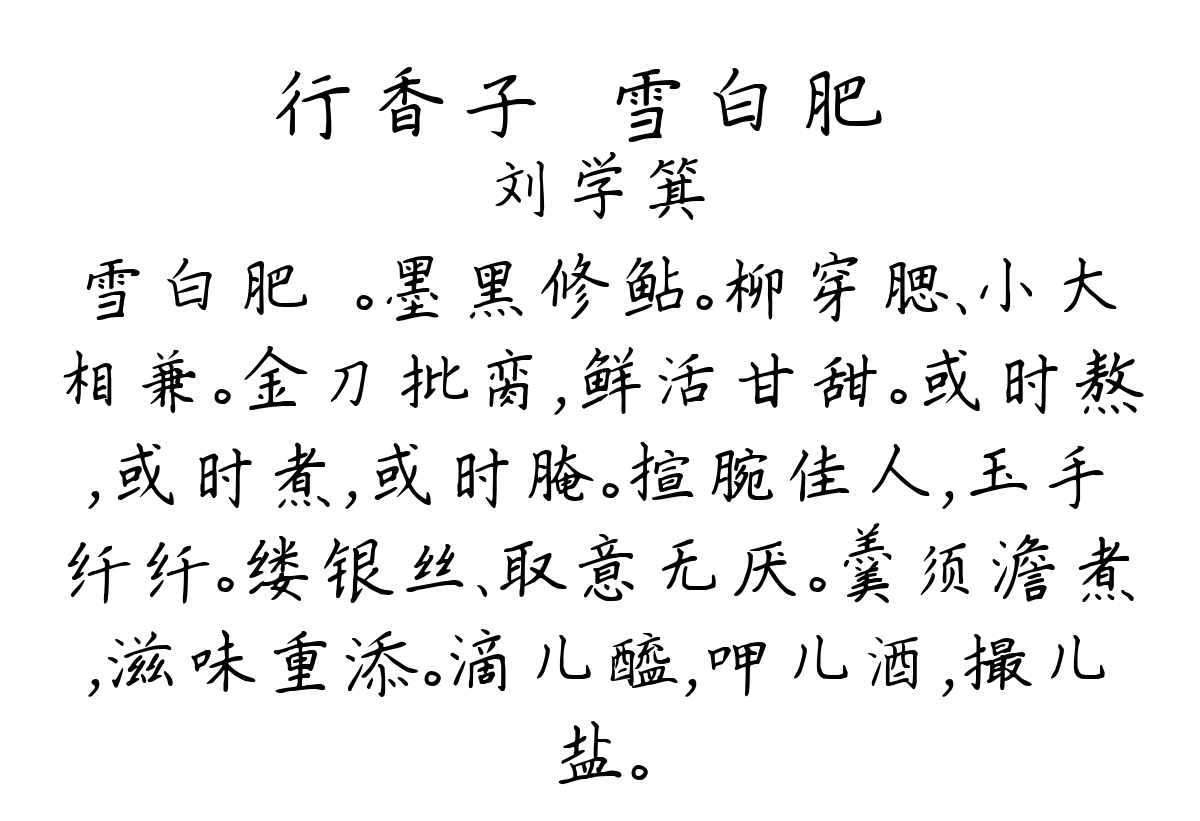 行香子 雪白肥
刘学箕
雪白肥 。墨黑修鲇。柳穿腮、小大
相兼。金刀批脔,鲜活甘甜。或时熬
,或时煮,或时腌。揎腕佳人,玉手
纤纤。缕银丝、取意无厌。羹须澹煮
,滋味重添。滴儿醯,呷儿酒,撮儿
盐。